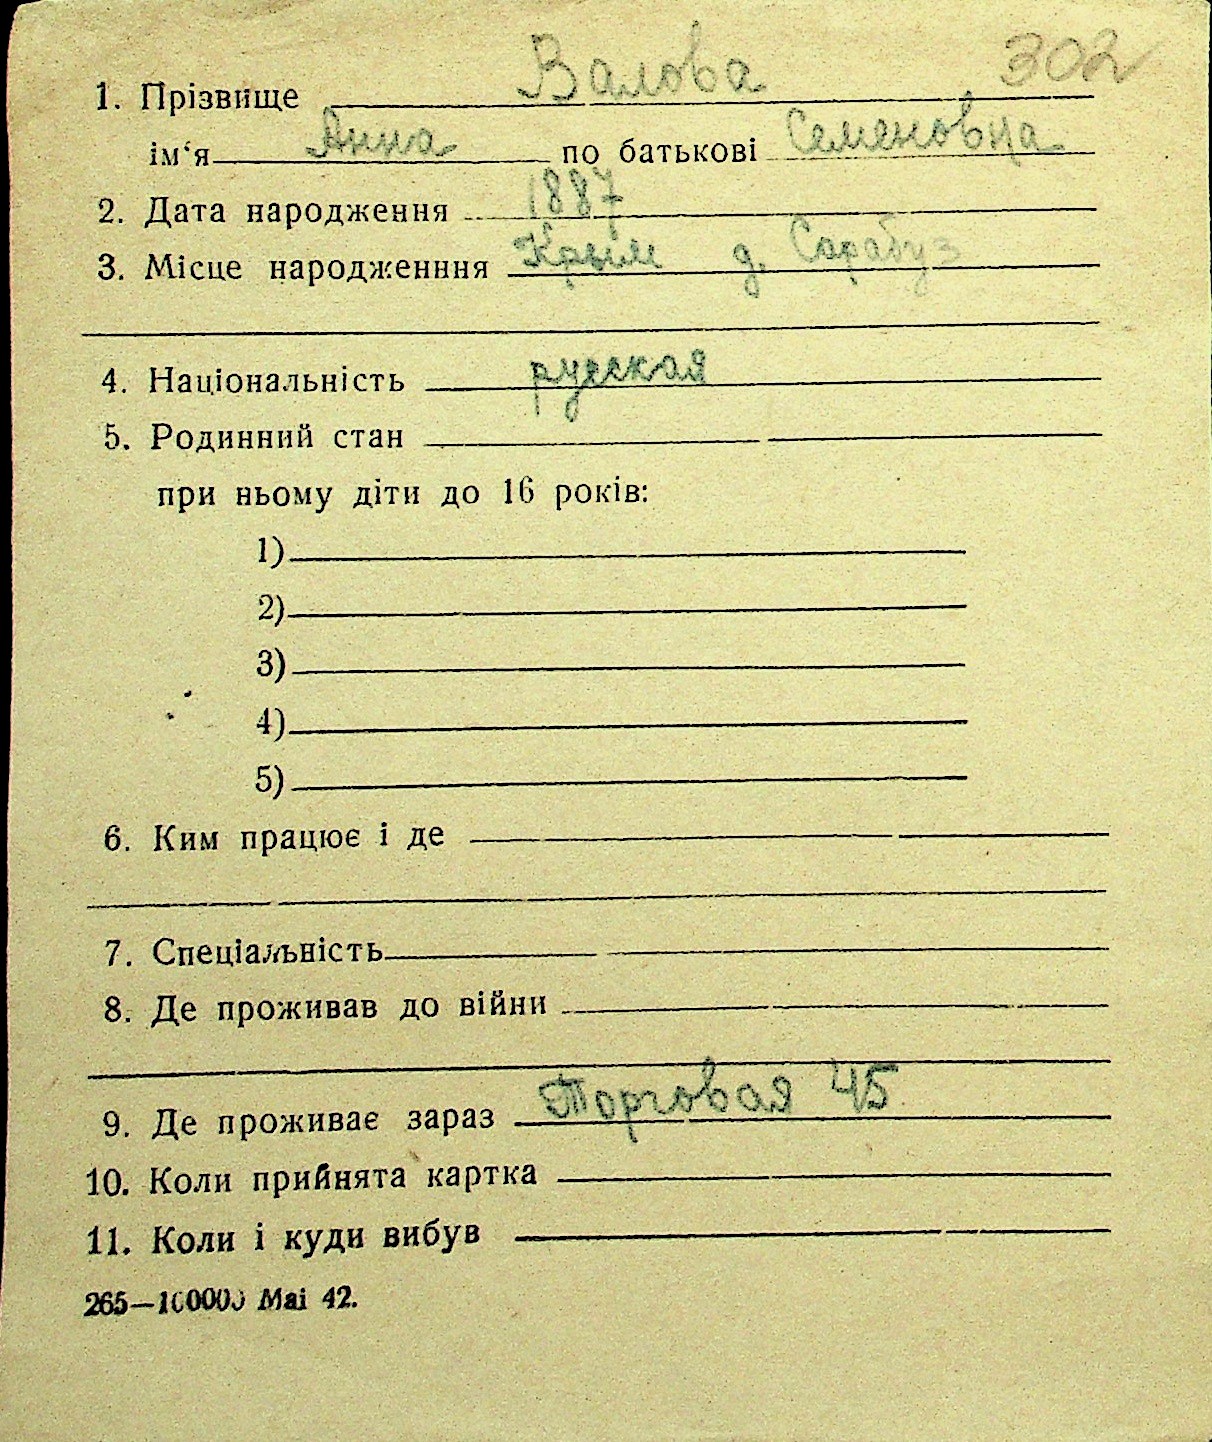 302
1. Прізвище Валова
ім‘я Анна по батькові Семеновна
2. Дата народження 1887
3. Місце народженння Крым д. Сарабуз
4. Національність русская
5. Родинний стан
при ньому діти до 16 років:
1)
2)
3)
4)
5)
6. Ким працює і де
7. Спеціальність
8. Де проживав до війни
9. Де проживає зараз Торговая 45
10. Коли прийнята картка
11. Коли і куди вибув
265—100000 Mai 42.